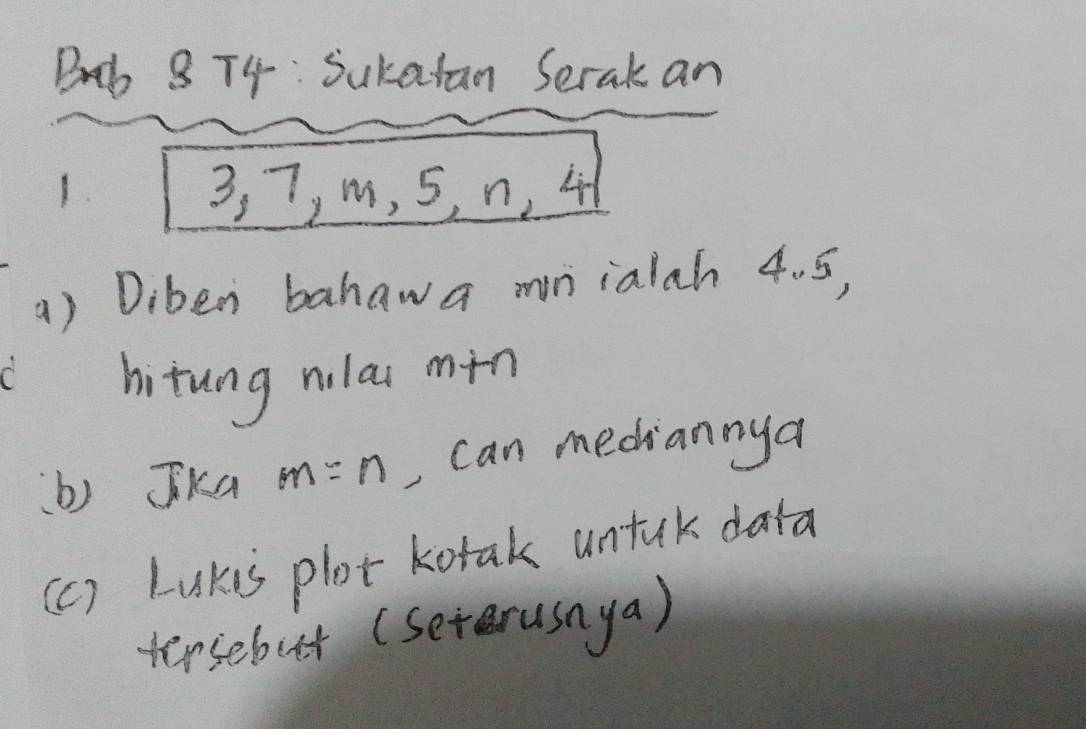 Bab 8 T4: Sukatan Serakan
1. 3, 7, m, 5, n, 4
a) Diberi bahawa min ialah 4.5,
hitung nilai m+n
b) Jika m=n, cari mediannya
(c) Lukis plot kotak untuk data
tersebut (seterusnya)